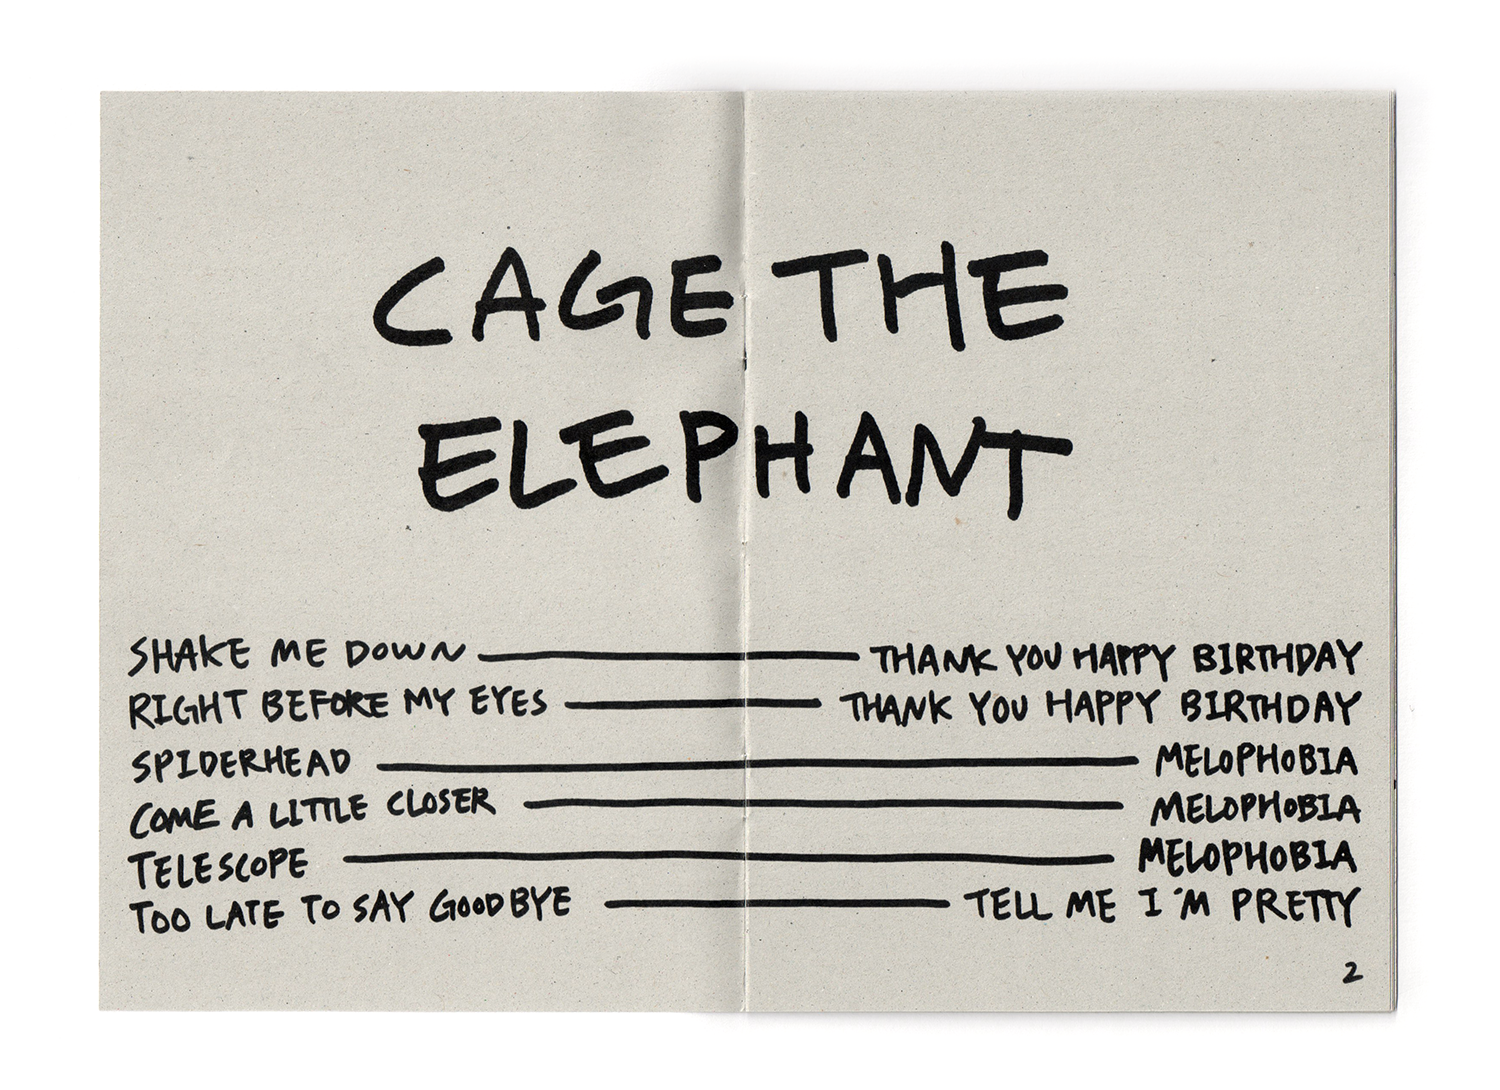 CAGE THE
ELEPHANT
SHAKE ME DOWN THANK YOU HAPPY BIRTHDAY
RIGHT BEFORE MY EYES THANK YOU HAPPY BIRTHDAY
SPIDERHEAD MELOPHOBIA
COME A LITTLE CLOSER MELOPHOBIA
TELESCOPE MELOPHOBIA
TOO LATE TO SAY GOODBYE TELL ME I'M PRETTY
2